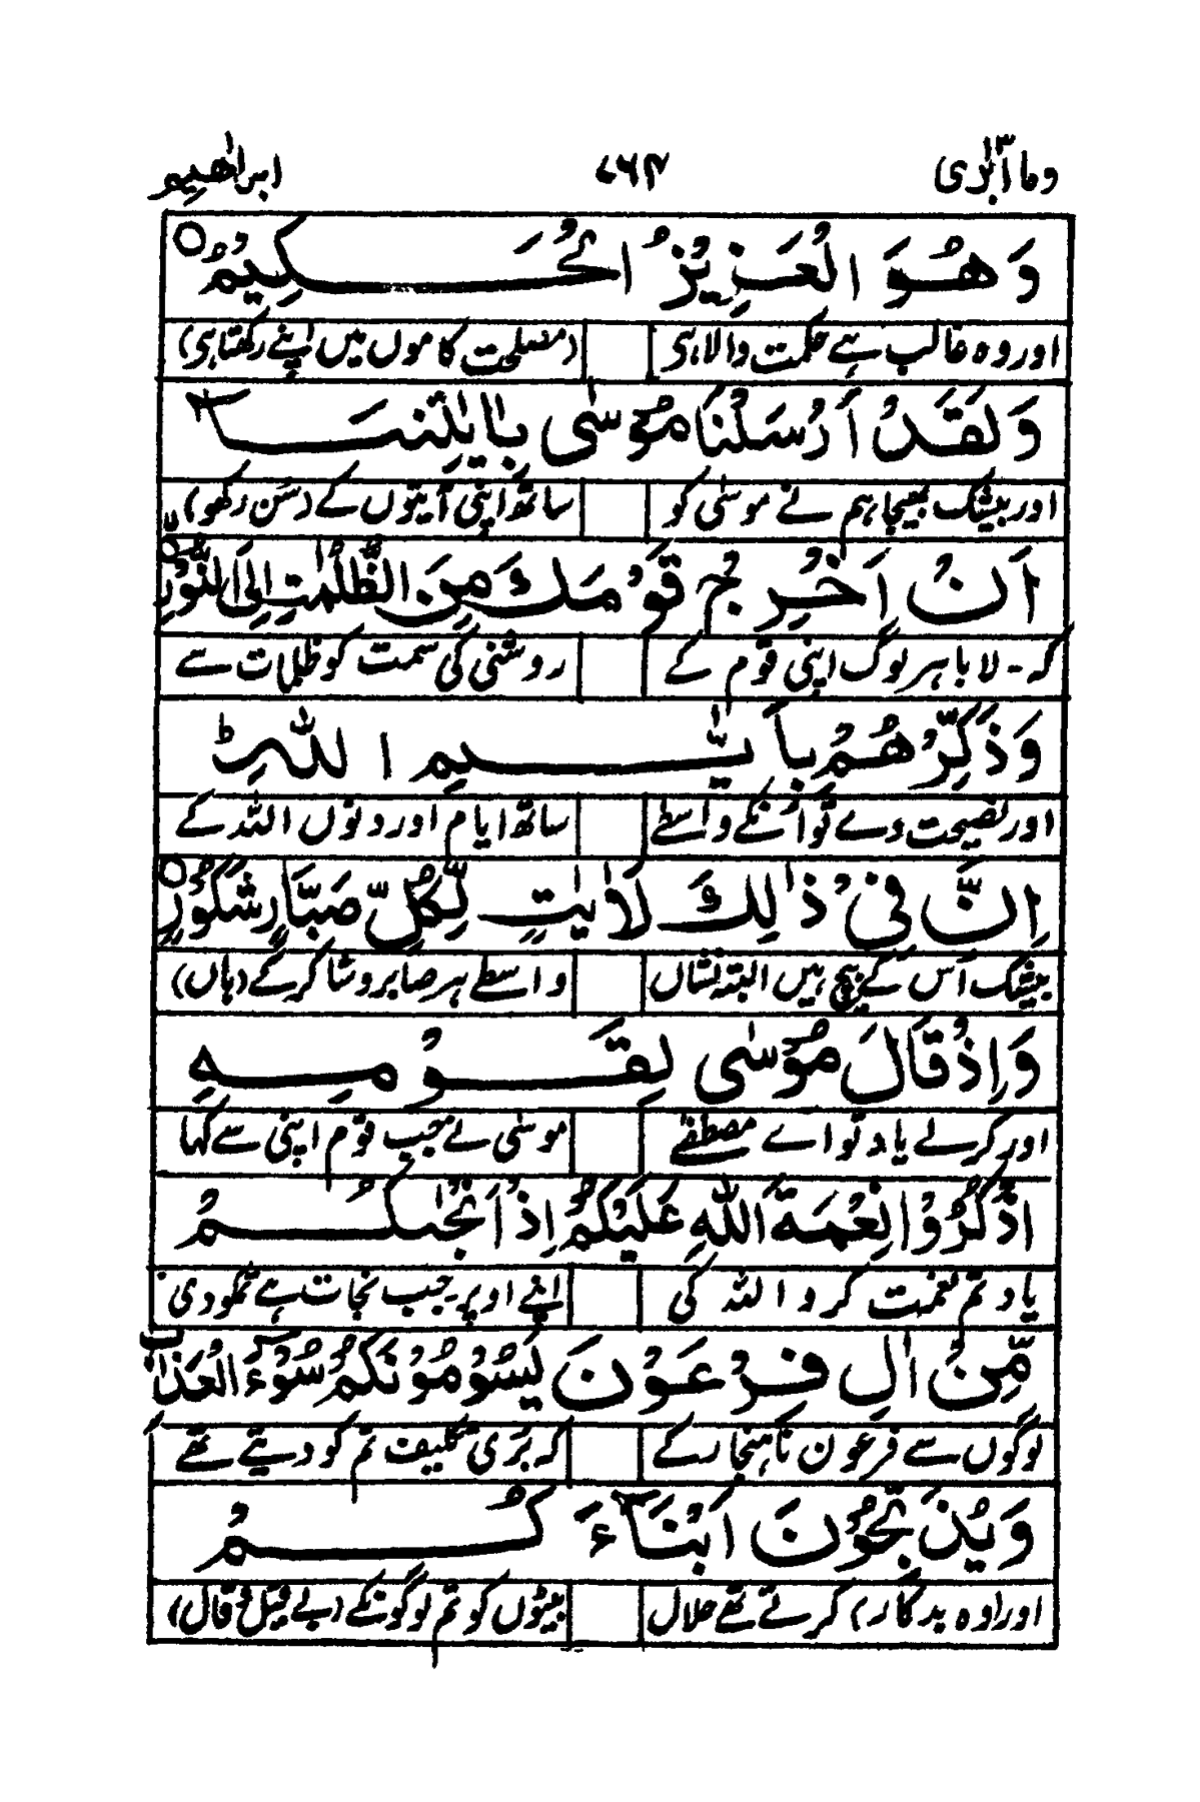 وما ابرئ ۱۳ ۷۶۴ ابراهيم
وَهُوَ الْعَزِيْزُ الْحَكِيْمُ ○
اور وہ غالب ہے حکمت والا ہی (مصلحت کاموں میں اپنے رکھتا ہی)
وَلَقَدْ اَرْسَلْنَا مُوْسٰى بِاٰيٰتِنَآ
اور بیشک بھیجا ہم نے موسٰی کو ساتھ اپنی آیتوں کے (سن رکھو)
اَنْ اَخْرِجْ قَوْمَكَ مِنَ الظُّلُمٰتِ اِلَى النُّوْرِ ○
کہ - لا باہر لوگ اپنی قوم کے روشنی کی سمت کو ظلمات سے
وَذَكِّرْهُمْ بِاَيّٰىمِ اللّٰهِ ؕ
اور نصیحت دے تو اُنکے واسطے ساتھ ایام اور دنوں اللہ کے
اِنَّ فِيْ ذٰلِكَ لَاٰيٰتٍ لِّكُلِّ صَبَّارٍ شَكُوْرٍ ○
بیشک اس کے بیچ ہیں البتہ نشاں واسطے ہر صابر و شاکر کے (ہاں)
وَاِذْ قَالَ مُوْسٰى لِقَوْمِهِ
اور کرلے یاد تو اے مصطفٰے موسٰی نے جب قوم اپنی سے کہا
اذْكُرُوْا نِعْمَةَ اللّٰهِ عَلَيْكُمْ اِذْ اَنْجٰىكُمْ
یاد تم نعمت کرو اللہ کی اپنے اوپر جب نجات ہے تمکو دی
مِّنْ اٰلِ فِرْعَوْنَ يَسُوْمُوْنَكُمْ سُوْٓءَ الْعَذَابِ
لوگوں سے فرعون ناہنجار کے کہ بُری تکلیف تم کو دیتے تھے
وَيُذَبِّحُوْنَ اَبْنَآءَكُمْ
اور (وہ بدکار) کرتے تھے حلال بیٹوں کو تم لوگونکے (بے قیل و قال)